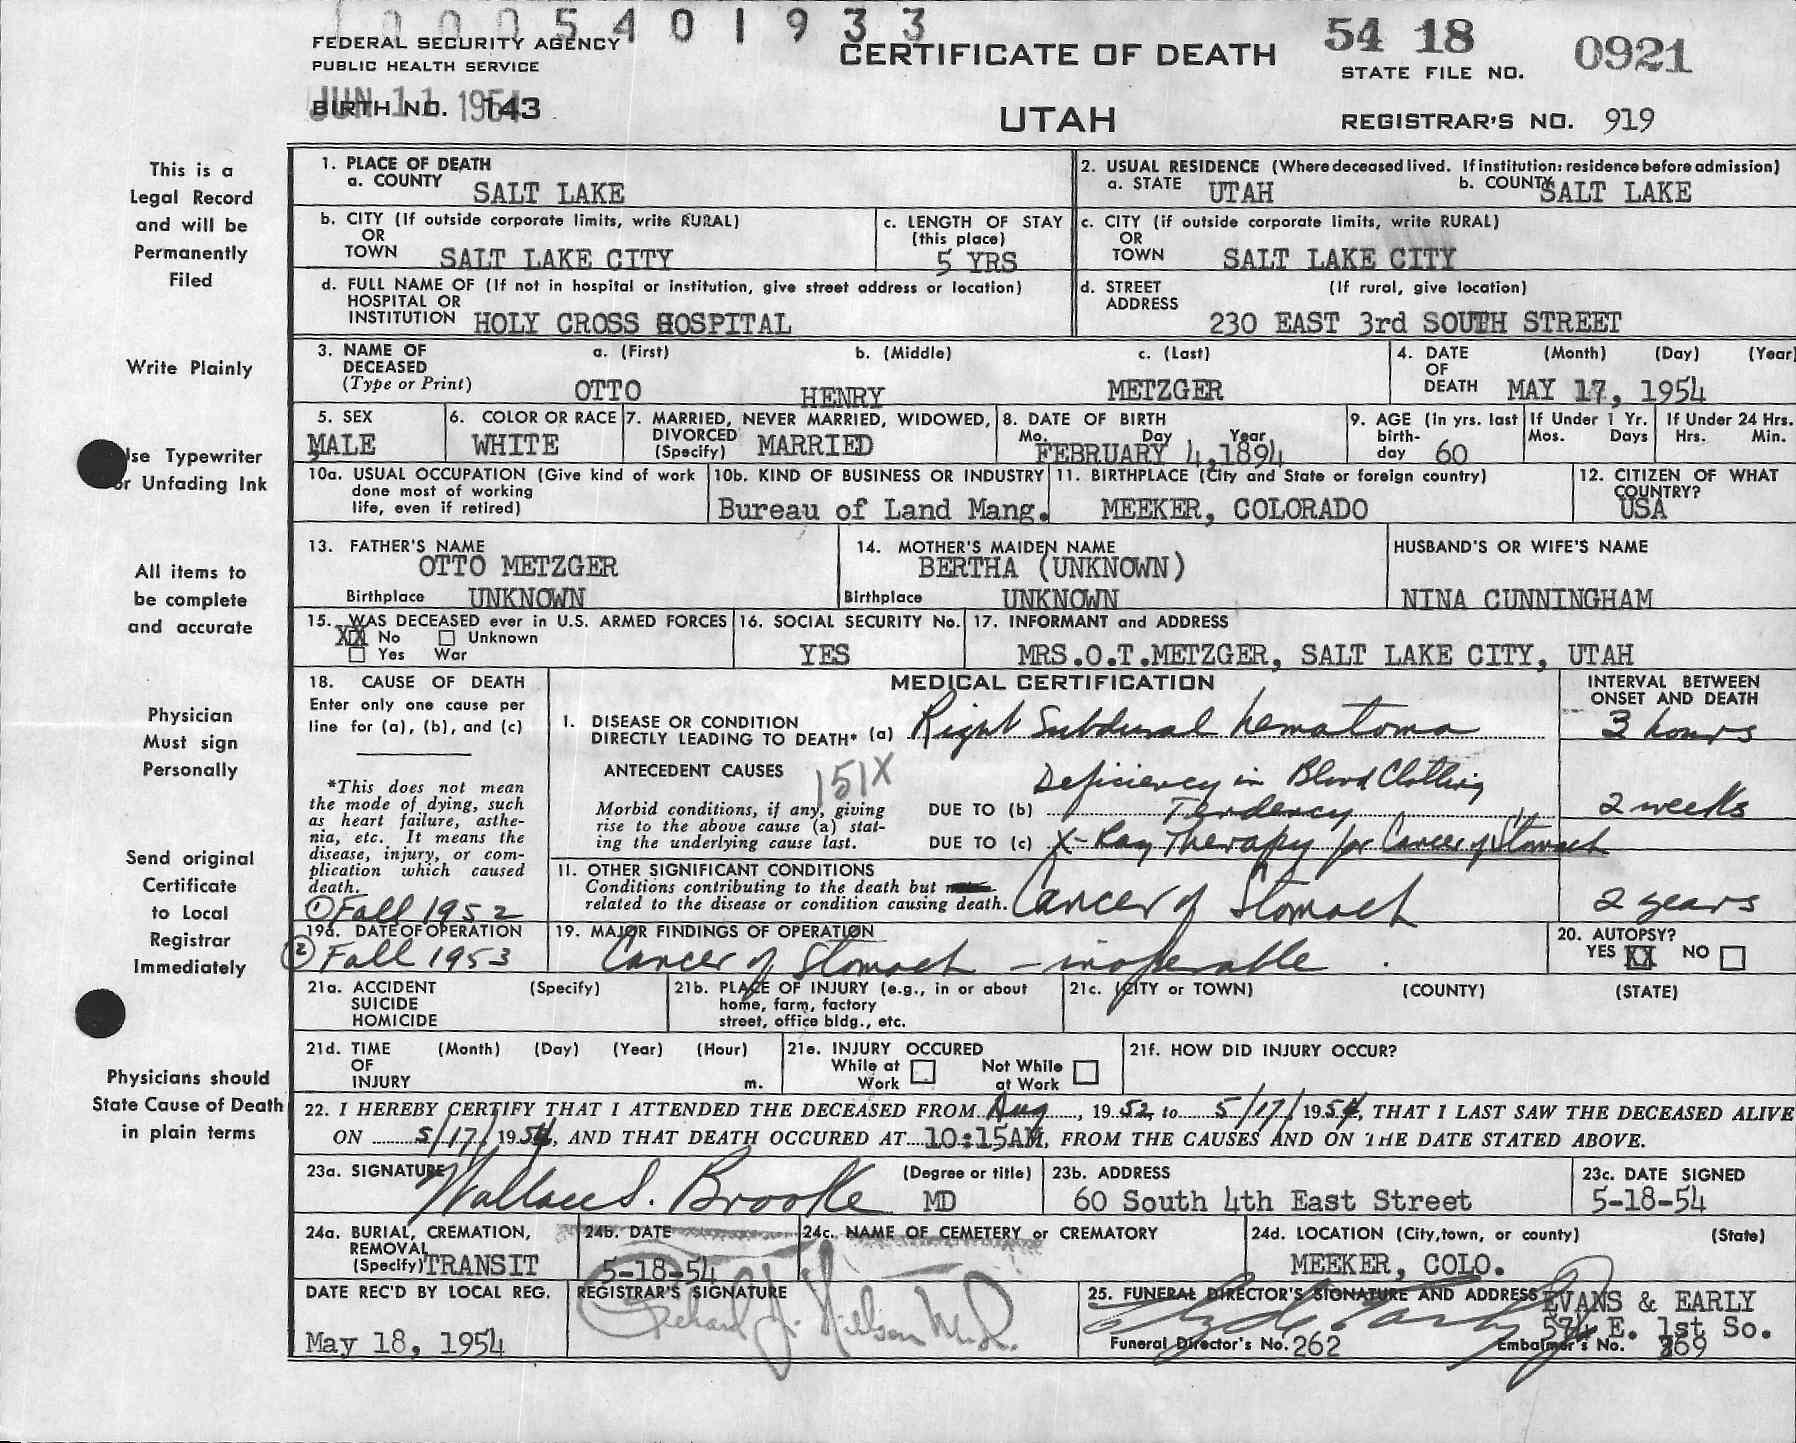 10005401933
FEDERAL SECURITY AGENCY
PUBLIC HEALTH SERVICE
CERTIFICATE OF DEATH
54 18 0921
STATE FILE NO.
JUN 11 1954
BIRTH NO. 143
UTAH
REGISTRAR'S NO. 919
This is a
Legal Record
and will be
Permanently
Filed
1. PLACE OF DEATH
a. COUNTY SALT LAKE
2. USUAL RESIDENCE (Where deceased lived. If institution: residence before admission)
a. STATE UTAH b. COUNTY SALT LAKE
b. CITY (If outside corporate limits, write RURAL)
OR
TOWN SALT LAKE CITY
c. LENGTH OF STAY
(this place)
5 YRS
c. CITY (if outside corporate limits, write RURAL)
OR
TOWN SALT LAKE CITY
d. FULL NAME OF (If not in hospital or institution, give street address or location)
HOSPITAL OR
INSTITUTION HOLY CROSS HOSPITAL
d. STREET (If rural, give location)
ADDRESS
230 EAST 3rd SOUTH STREET
Write Plainly
3. NAME OF a. (First) b. (Middle) c. (Last)
DECEASED
(Type or Print) OTTO HENRY METZGER
4. DATE (Month) (Day) (Year)
OF
DEATH MAY 17, 1954
5. SEX
MALE
6. COLOR OR RACE
WHITE
7. MARRIED, NEVER MARRIED, WIDOWED,
DIVORCED
(Specify) MARRIED
8. DATE OF BIRTH
Mo. Day Year
FEBRUARY 4,1894
9. AGE (In yrs. last
birth-
day 60
If Under 1 Yr.
Mos. Days
If Under 24 Hrs.
Hrs. Min.
Use Typewriter
or Unfading Ink
10a. USUAL OCCUPATION (Give kind of work
done most of working
life, even if retired)
10b. KIND OF BUSINESS OR INDUSTRY
Bureau of Land Mang.
11. BIRTHPLACE (City and State or foreign country)
MEEKER, COLORADO
12. CITIZEN OF WHAT
COUNTRY?
USA
All items to
be complete
and accurate
13. FATHER'S NAME
OTTO METZGER
Birthplace UNKNOWN
14. MOTHER'S MAIDEN NAME
BERTHA (UNKNOWN)
Birthplace UNKNOWN
HUSBAND'S OR WIFE'S NAME
NINA CUNNINGHAM
15. WAS DECEASED ever in U.S. ARMED FORCES
XX No Unknown
Yes War
16. SOCIAL SECURITY No.
YES
17. INFORMANT and ADDRESS
MRS.O.T.METZGER, SALT LAKE CITY, UTAH
Physician
Must sign
Personally
18. CAUSE OF DEATH
Enter only one cause per
line for (a), (b), and (c)
*This does not mean
the mode of dying, such
as heart failure, asthe-
nia, etc. It means the
disease, injury, or com-
plication which caused
death.
MEDICAL CERTIFICATION
INTERVAL BETWEEN
ONSET AND DEATH
I. DISEASE OR CONDITION
DIRECTLY LEADING TO DEATH* (a) Right Subdural hematoma 3 hours
ANTECEDENT CAUSES 151X
Morbid conditions, if any, giving
rise to the above cause (a) stat-
ing the underlying cause last.
DUE TO (b) Deficiency in Blood Clotting
Tendency 2 weeks
DUE TO (c) X-Ray Therapy for Cancer of Stomach
Send original
Certificate
to Local
Registrar
Immediately
11. OTHER SIGNIFICANT CONDITIONS
Conditions contributing to the death but
related to the disease or condition causing death. Cancer of Stomach 2 years
① Fall 1952
19a. DATE OF OPERATION
② Fall 1953
19. MAJOR FINDINGS OF OPERATION
Cancer of Stomach - inoperable.
20. AUTOPSY?
YES XX NO
21a. ACCIDENT (Specify)
SUICIDE
HOMICIDE
21b. PLACE OF INJURY (e.g., in or about
home, farm, factory
street, office bldg., etc.
21c. (CITY or TOWN) (COUNTY) (STATE)
21d. TIME (Month) (Day) (Year) (Hour)
OF
INJURY m.
21e. INJURY OCCURED
While at Not While
Work at Work
21f. HOW DID INJURY OCCUR?
Physicians should
State Cause of Death
in plain terms
22. I HEREBY CERTIFY THAT I ATTENDED THE DECEASED FROM Aug, 1952 to 5/17/1954, THAT I LAST SAW THE DECEASED ALIVE
ON 5/17/1954, AND THAT DEATH OCCURED AT 10:15AM, FROM THE CAUSES AND ON THE DATE STATED ABOVE.
23a. SIGNATURE (Degree or title)
Wallace S. Brooke MD
23b. ADDRESS
60 South 4th East Street
23c. DATE SIGNED
5-18-54
24a. BURIAL, CREMATION,
REMOVAL
(Specify) TRANSIT
24b. DATE
5-18-54
24c. NAME OF CEMETERY or CREMATORY
24d. LOCATION (City, town, or county) (State)
MEEKER, COLO.
DATE REC'D BY LOCAL REG.
May 18, 1954
REGISTRAR'S SIGNATURE
Richard J. Nielsen M.D.
25. FUNERAL DIRECTOR'S SIGNATURE AND ADDRESS EVANS & EARLY
574 E. 1st So.
Funeral Director's No. 262 Embalmer's No. 369